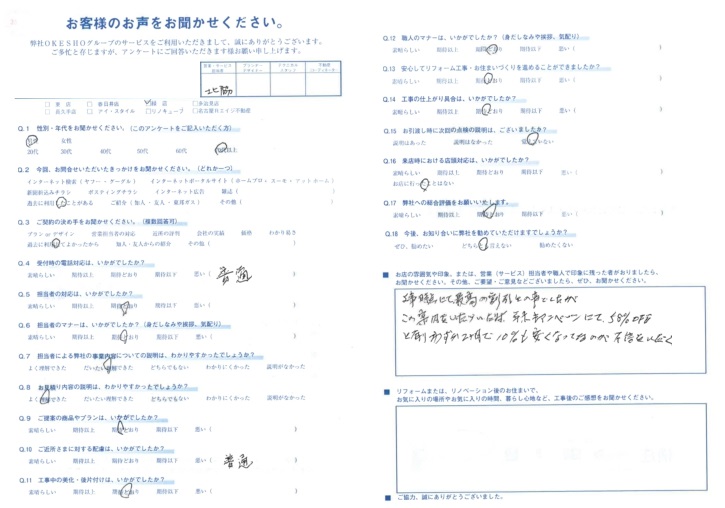 お客様のお声をお聞かせください。
弊社OKESHOグループのサービスをご利用いただきまして、誠にありがとうございます。
ご多忙と存じますが、アンケートにご回答いただきます様お願い申し上げます。
営業・サービス 担当者
プランナー デザイナー
アドバイス スタッフ
不動産
北脇
本店 春日井店 緑店 多治見店
長久手店 アイ・スタイル リノキューブ 名古屋ウエイジ不動産
Q.1 性別・年代をお聞かせください。(このアンケートをご記入いただく方)
男性 女性
20代 30代 40代 50代 60代 70代以上
Q.2 今回、お問合せいただいたきっかけをお聞かせください。(どれか一つ)
インターネット検索(ヤフー・グーグル) インターネットポータルサイト(ホームプロ・スーモ・アットホーム)
新聞折込みチラシ ポスティングチラシ インターネット広告 雑誌( )
過去に利用したことがある ご紹介(知人・友人・東邦ガス) その他( )
Q.3 ご契約の決め手をお聞かせください。(複数回答可)
プラン or デザイン 営業担当者の対応 近所の評判 会社の実績 価格 わかり易さ
過去に利用してよかったから 知人・友人からの紹介 その他( )
Q.4 受付時の電話対応は、いかがでしたか?
素晴らしい 期待以上 期待どおり 期待以下 悪い( 普通 )
Q.5 担当者の対応は、いかがでしたか?
素晴らしい 期待以上 期待どおり 期待以下 悪い( )
Q.6 担当者のマナーは、いかがでしたか?(身だしなみや挨拶、気配り)
素晴らしい 期待以上 期待どおり 期待以下 悪い( )
Q.7 担当者による弊社の事業内容についての説明は、わかりやすかったでしょうか?
よく理解できた だいたい理解できた どちらでもない わかりにくかった 説明がなかった
Q.8 お見積り内容の説明は、わかりやすかったでしょうか?
よく理解できた だいたい理解できた どちらでもない わかりにくかった 説明がなかった
Q.9 ご提案の商品やプランは、いかがでしたか?
素晴らしい 期待以上 期待どおり 期待以下 悪い( )
Q.10 ご近所さまに対する配慮は、いかがでしたか?
素晴らしい 期待以上 期待どおり 期待以下 悪い( 普通 )
Q.11 工事中の美化・後片付けは、いかがでしたか?
素晴らしい 期待以上 期待どおり 期待以下 悪い( )
Q.12 職人のマナーは、いかがでしたか?(身だしなみや挨拶、気配り)
素晴らしい 期待以上 期待どおり 期待以下 悪い( )
Q.13 安心してリフォーム工事・お住まいづくりを進めることができましたか?
素晴らしい 期待以上 期待どおり 期待以下 悪い( )
Q.14 工事の仕上がり具合は、いかがでしたか?
素晴らしい 期待以上 期待どおり 期待以下 悪い( )
Q.15 お引渡し時に次回の点検の説明は、ございましたか?
説明はあった 説明はなかった 覚えていない
Q.16 来店時における店舗対応は、いかがでしたか?
素晴らしい 期待以上 期待どおり 期待以下 悪い( )
お店に行ったことはない
Q.17 弊社への総合評価をお願いいたします。
素晴らしい 期待以上 期待どおり 期待以下 悪い( )
Q.18 今後、お知り合いに弊社を勧めていただけますでしょうか?
ぜひ、勧めたい どちらとも言えない 勧めたくない
■ お店の雰囲気や印象、または、営業(サービス)担当者や職人で印象に残った者がおりましたら、
お聞かせください。その他、ご要望・ご意見などございましたら、ぜひ、お聞かせください。
58%OFF
10%も安くなって
■ リフォームまたは、リノベーション後のお住まいで、
お気に入りの場所やお気に入りの時間、暮らし心地など、工事後のご感想をお聞かせください。
■ ご協力、誠にありがとうございました。